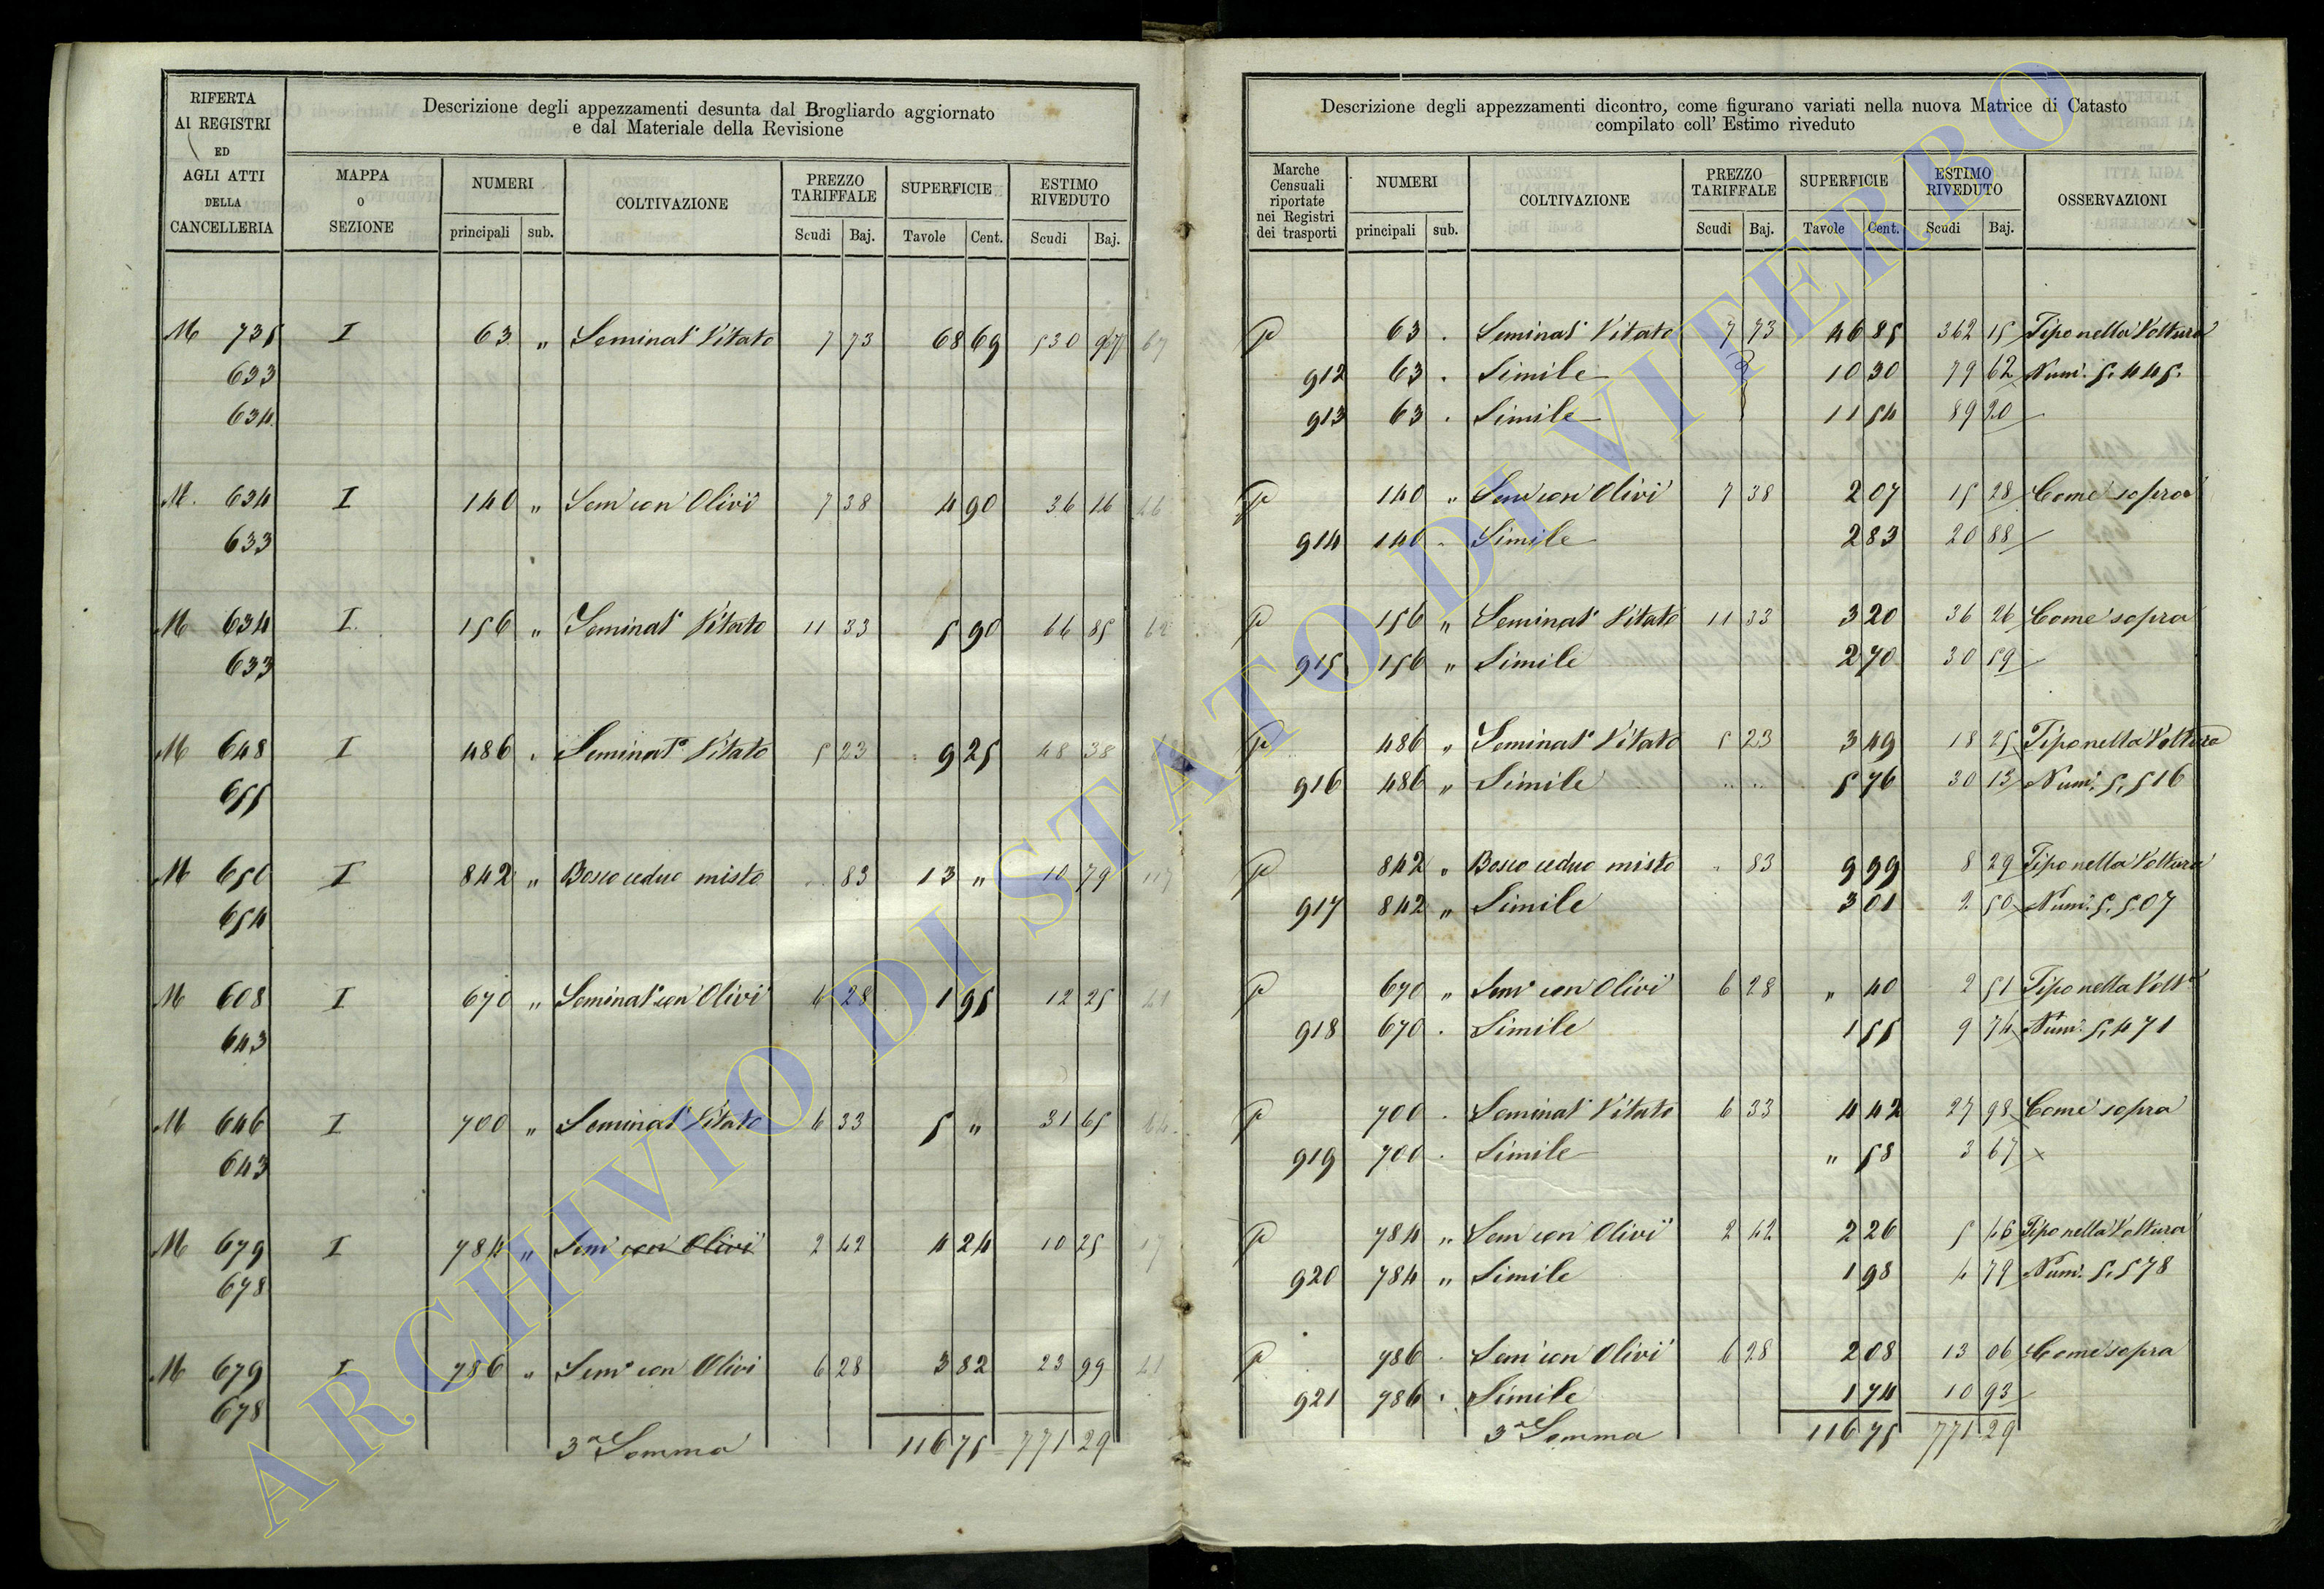 RIFERTA
AI REGISTRI
ED
AGLI ATTI
DELLA
CANCELLERIA
Descrizione degli appezzamenti desunta dal Brogliardo aggiornato
e dal Materiale della Revisione
MAPPA
O
SEZIONE
NUMERI
principali sub.
COLTIVAZIONE
PREZZO
TARIFFALE
Scudi Baj.
SUPERFICIE
Tavole Cent.
ESTIMO
RIVEDUTO
Scudi Baj.
M 735 I 63 " Seminat° Vitato 7 73 68 69 530 97 67
633
634
M. 634 I 140 " Sem° con Olivi 7 38 4 90 36 16
633
M 634 I 156 " Seminat° Vitato 11 33 5 90 66 85
633
M 648 I 486 . Seminat° Vitato 5 23 9 25 48 38
655
M 650 I 842 " Bosco ceduo misto 83 13 " 10 79
654
M 608 I 670 " Seminat° con Olivi 6 28 1 95 12 25
643
M 646 I 700 " Seminat° Vitato 6 33 5 " 31 65
643
M 679 I 784 " Sem° con Olivi 2 42 4 24 10 25
678
M 679 I 786 " Sem° con Olivi 6 28 3 82 23 99
678
3ª Somma 116 75 771 29
Descrizione degli appezzamenti dicontro, come figurano variati nella nuova Matrice di Catasto
compilato coll' Estimo riveduto
Marche
Censuali
riportate
nei Registri
dei trasporti
NUMERI
principali sub.
COLTIVAZIONE
PREZZO
TARIFFALE
Scudi Baj.
SUPERFICIE
Tavole Cent.
ESTIMO
RIVEDUTO
Scudi Baj.
OSSERVAZIONI
p 63 . Seminat° Vitato 7 73 46 85 362 15 Tipo nella Voltura
912 63 . Simile 10 30 79 62 Num°. 5.445.
913 63 . Simile 11 54 89 20
p 140 " Sem° con Olivi 7 38 2 07 15 28 Come sopra
914 140 . Simile 2 83 20 88
p 156 " Seminat° Vitato 11 33 3 20 36 26 Come sopra
915 156 " Simile 2 70 30 59
p 486 " Seminat° Vitato 5 23 3 49 18 25 Tipo nella Voltura
916 486 " Simile 5 76 30 13 Num°. 5.516
p 842 " Bosco ceduo misto " 83 9 99 8 29 Tipo nella Voltura
917 842 " Simile 3 01 2 50 Num°. 5.507
p 670 " Sem° con Olivi 6 28 " 40 2 51 Tipo nella Volt.ª
918 670 . Simile 1 55 9 74 Num°. 5.471
p 700 . Seminat° Vitato 6 33 4 42 27 98 Come sopra
919 700 . Simile " 58 3 67
p 784 " Sem° con Olivi 2 42 2 26 5 46 Tipo nella Voltura
920 784 " Simile 1 98 4 79 Num°. 5.578
p 786 . Sem° con Olivi 6 28 2 08 13 06 Come sopra
921 786 . Simile 1 74 10 93
3ª Somma 116 75 771 29
ARCHIVIO DI STATO DI VITERBO